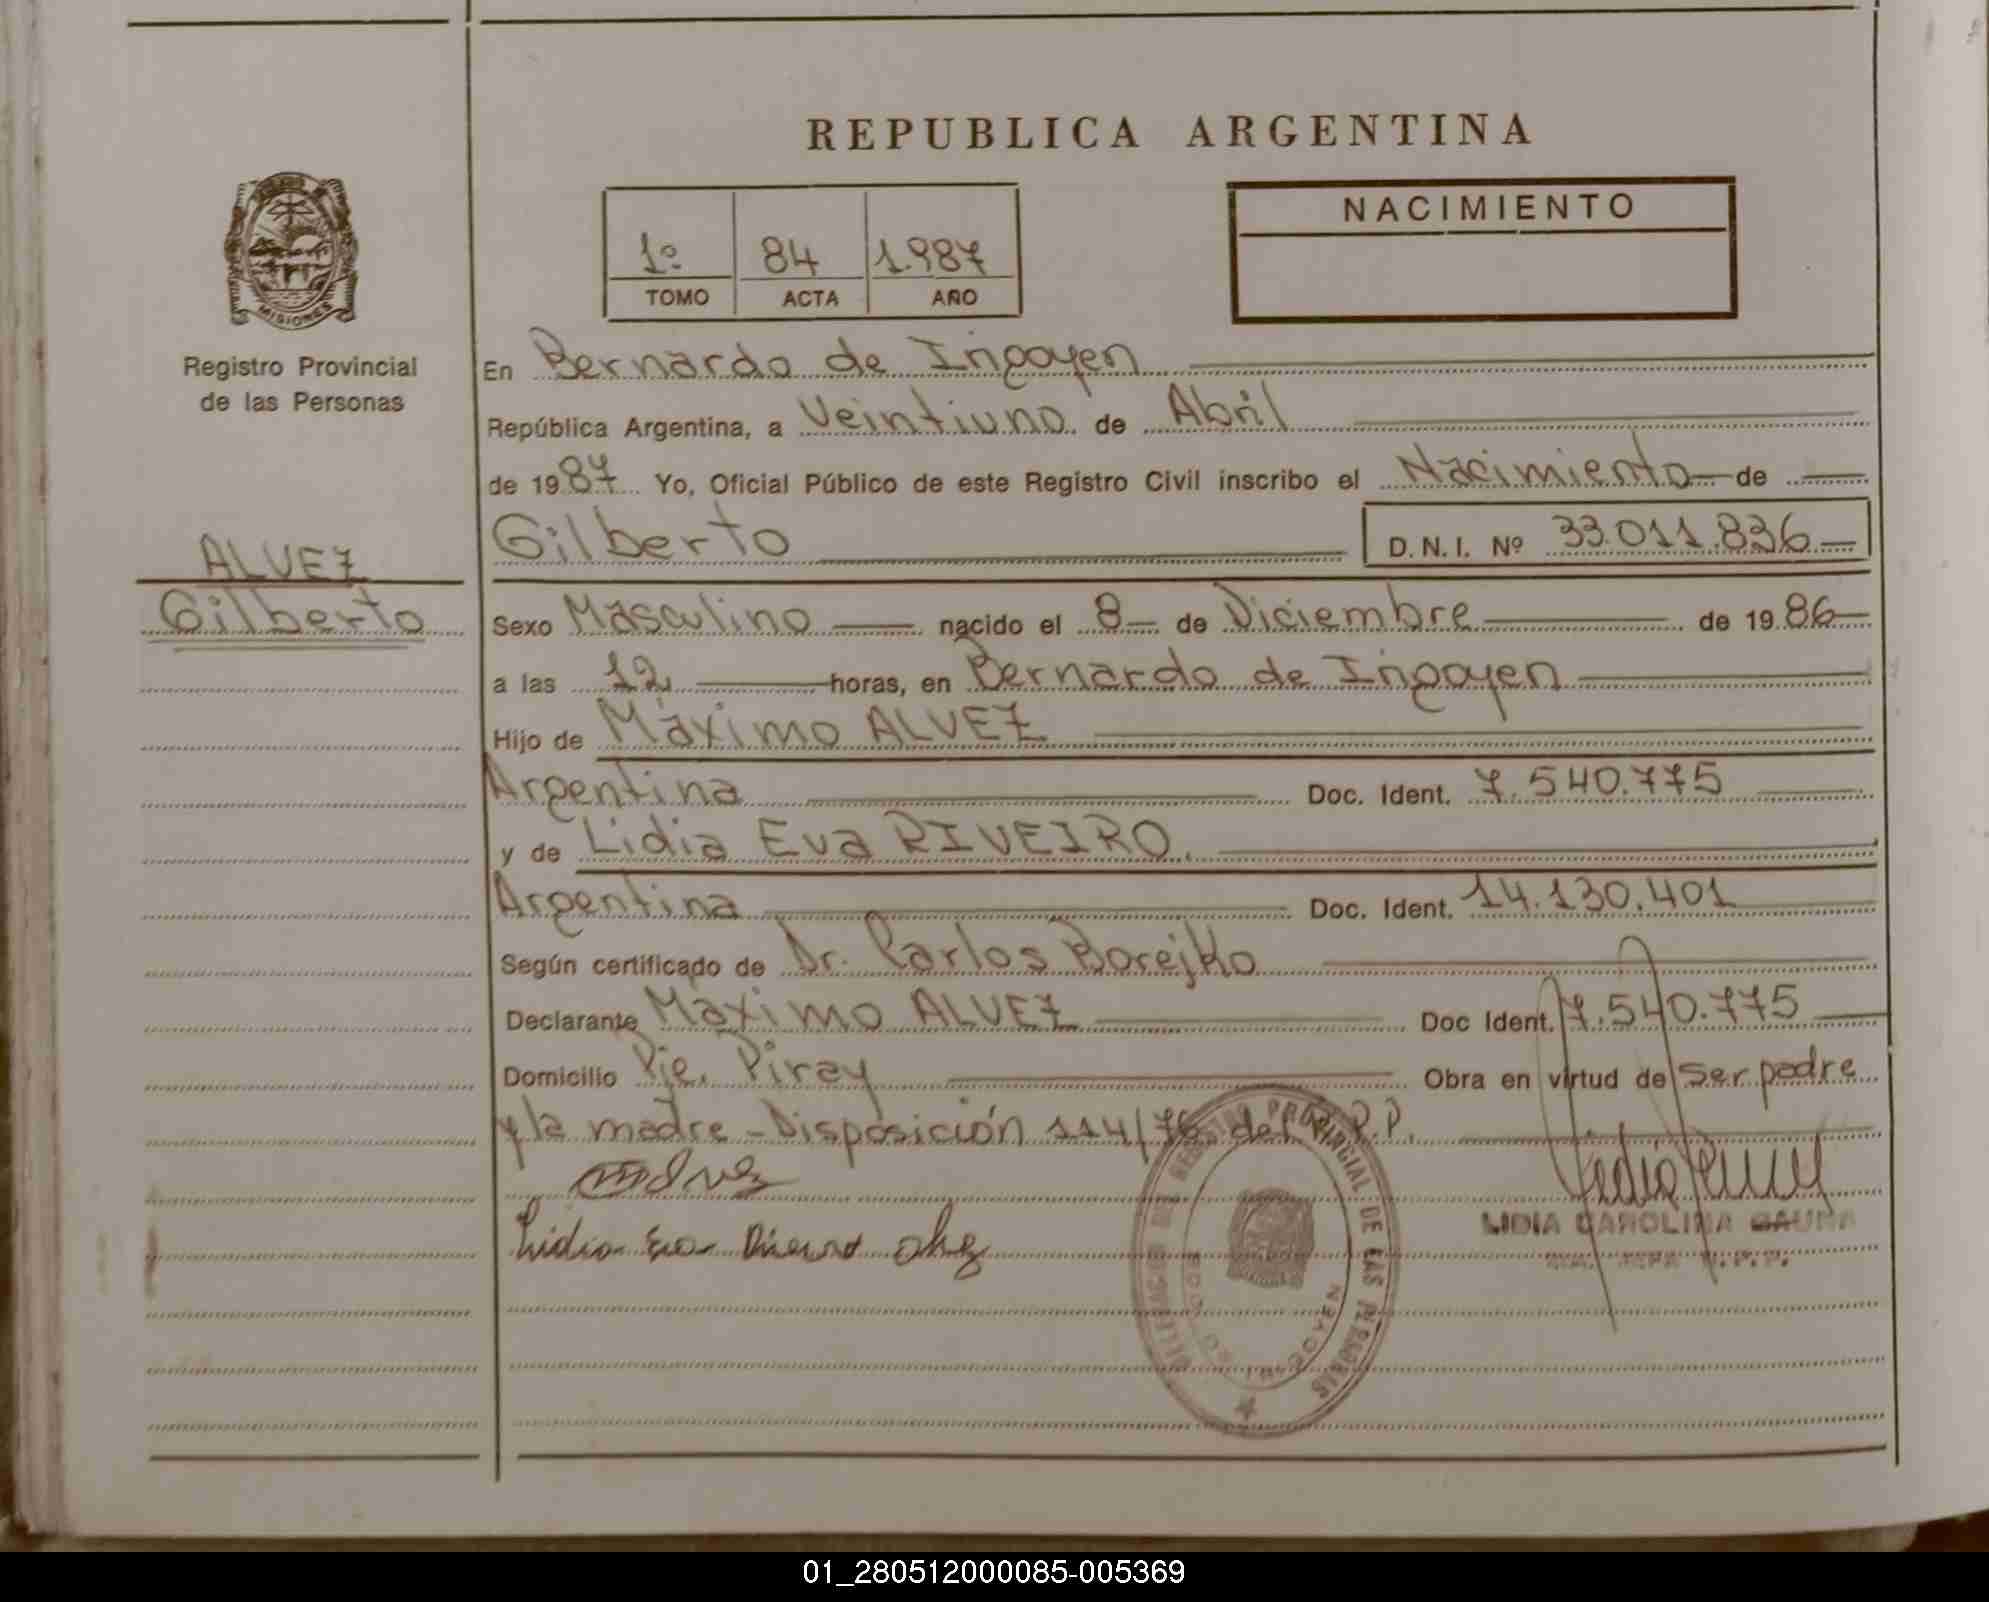 REPUBLICA ARGENTINA
MISIONES
Registro Provincial
de las Personas
1º 84 1.987
TOMO ACTA AÑO
NACIMIENTO
En Bernardo de Irigoyen
República Argentina, a Veintiuno de Abril
de 1987 Yo, Oficial Público de este Registro Civil inscribo el Nacimiento de
ALVEZ
Gilberto
Gilberto D.N.I. Nº 33.011.836
Sexo Masculino nacido el 8 de Diciembre de 1986
a las 12 horas, en Bernardo de Irigoyen
Hijo de Máximo ALVEZ
Argentina Doc. Ident. 7.540.775
y de Lidia Eva RIVEIRO.
Argentina Doc. Ident. 14.130.401
Según certificado de Dr. Carlos Borejko
Declarante Máximo ALVEZ Doc Ident. 7.540.775
Domicilio Pje. Piray Obra en virtud de ser padre
y la madre - Disposición 114/76 del R.P.P.
Lidia Eva
LIDIA CAROLINA GAUNA
DELEGACION DEL REGISTRO PROVINCIAL DE LAS PERSONAS
BDO. DE IRIGOYEN
01_280512000085-005369